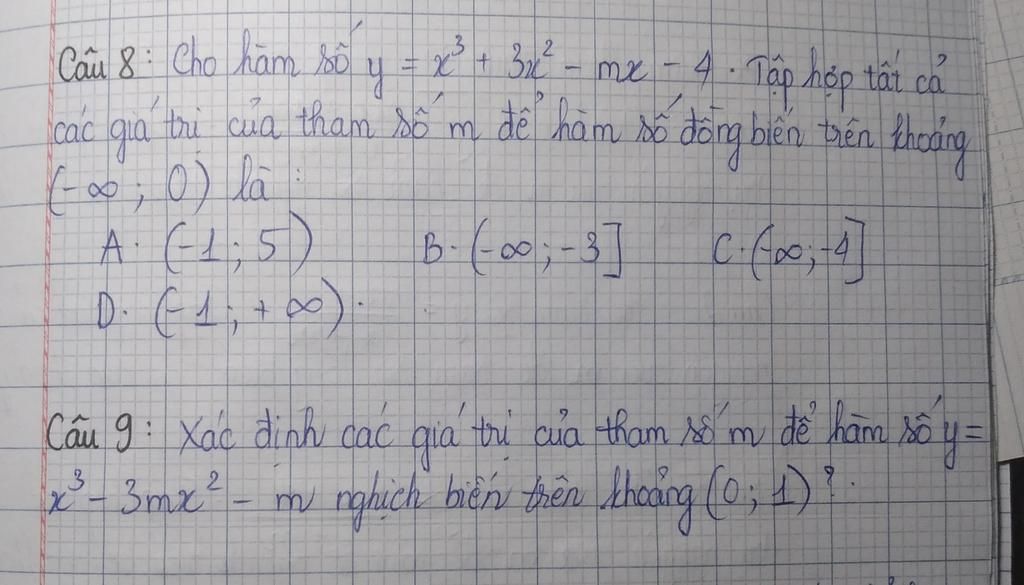 Câu 8: Cho hàm số y = x³ + 3x² - mx - 4. Tập hợp tất cả
các giá trị của tham số m để hàm số đồng biến trên khoảng
(-∞; 0) là:
A. (-1; 5) B. (-∞; -3] C. (-∞; -4]
D. (-1; +∞).
Câu 9: Xác định các giá trị của tham số m để hàm số y =
x³ - 3mx² - m nghịch biến trên khoảng (0; 1)?.